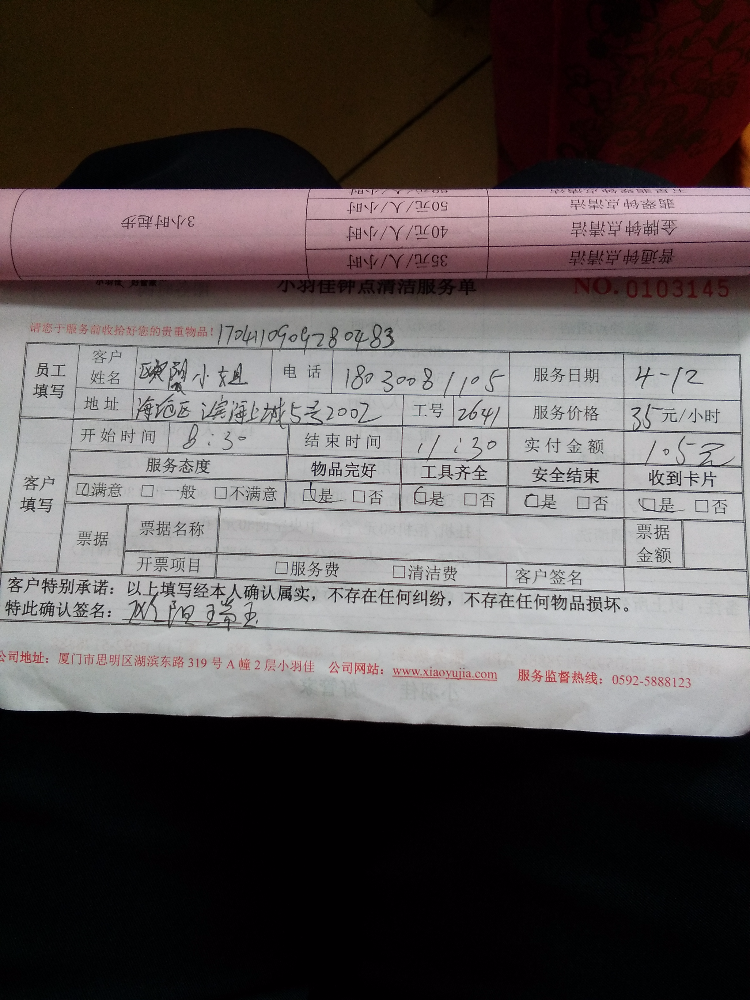 五星翡翠钟点清洁
翡翠钟点清洁 50元/人/小时
金牌钟点清洁 40元/人/小时 3小时起步
普通钟点清洁 35元/人/小时
小羽佳钟点清洁服务单 NO.0103145
请您于服务前收拾好您的贵重物品! 1704110909280483
员工填写 客户姓名 欧阳小姐 电话 18030081105 服务日期 4-12
地址 海沧区滨海上城5号2002 工号 2641 服务价格 35元/小时
客户填写 开始时间 8:30 结束时间 11:30 实付金额 105元
服务态度 物品完好 工具齐全 安全结束 收到卡片
☑满意 □一般 □不满意 ☑是 □否 ☑是 □否 ☑是 □否 ☑是 □否
票据 票据名称 票据金额
开票项目 □服务费 □清洁费 客户签名
客户特别承诺:以上填写经本人确认属实,不存在任何纠纷,不存在任何物品损坏。
特此确认签名:欧阳瑞玉
公司地址:厦门市思明区湖滨东路 319 号 A 幢 2 层小羽佳 公司网站:www.xiaoyujia.com 服务监督热线:0592-5888123